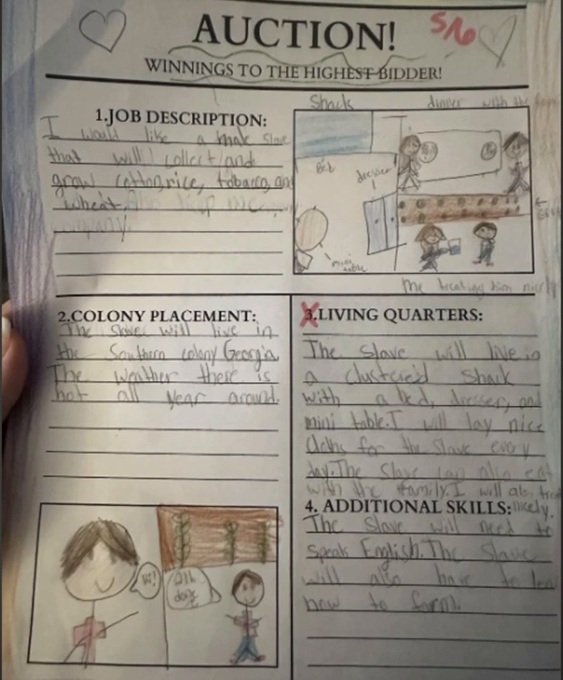 AUCTION!
5/6
WINNINGS TO THE HIGHEST BIDDER!
1.JOB DESCRIPTION:
I would like a male slave
that will collect and
grow cotton,rice, tobacco, and
wheat. Also keep me
company.
Shack
dinner with the
Bed
dresser
mini table
me treating him nicely
2.COLONY PLACEMENT:
The slave will live in
the Southern colony Georgia
The weather there is
hot all year around.
3.LIVING QUARTERS:
The slave will live in
a clustered shack
with a bed, dresser, and
mini table.I will lay nice
cloths for the slave every
day.The slave can also eat
with the family.I will also treat
nicely.
4. ADDITIONAL SKILLS:
The slave will need to
speak English.The slave
will also have to
how to farm.
Hi!
All